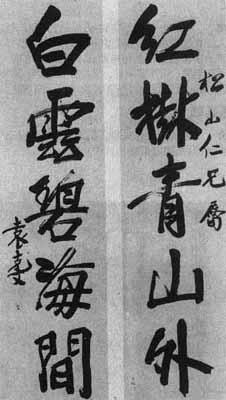 紅樹青山外
松山仁兄屬
白雲碧海間
袁